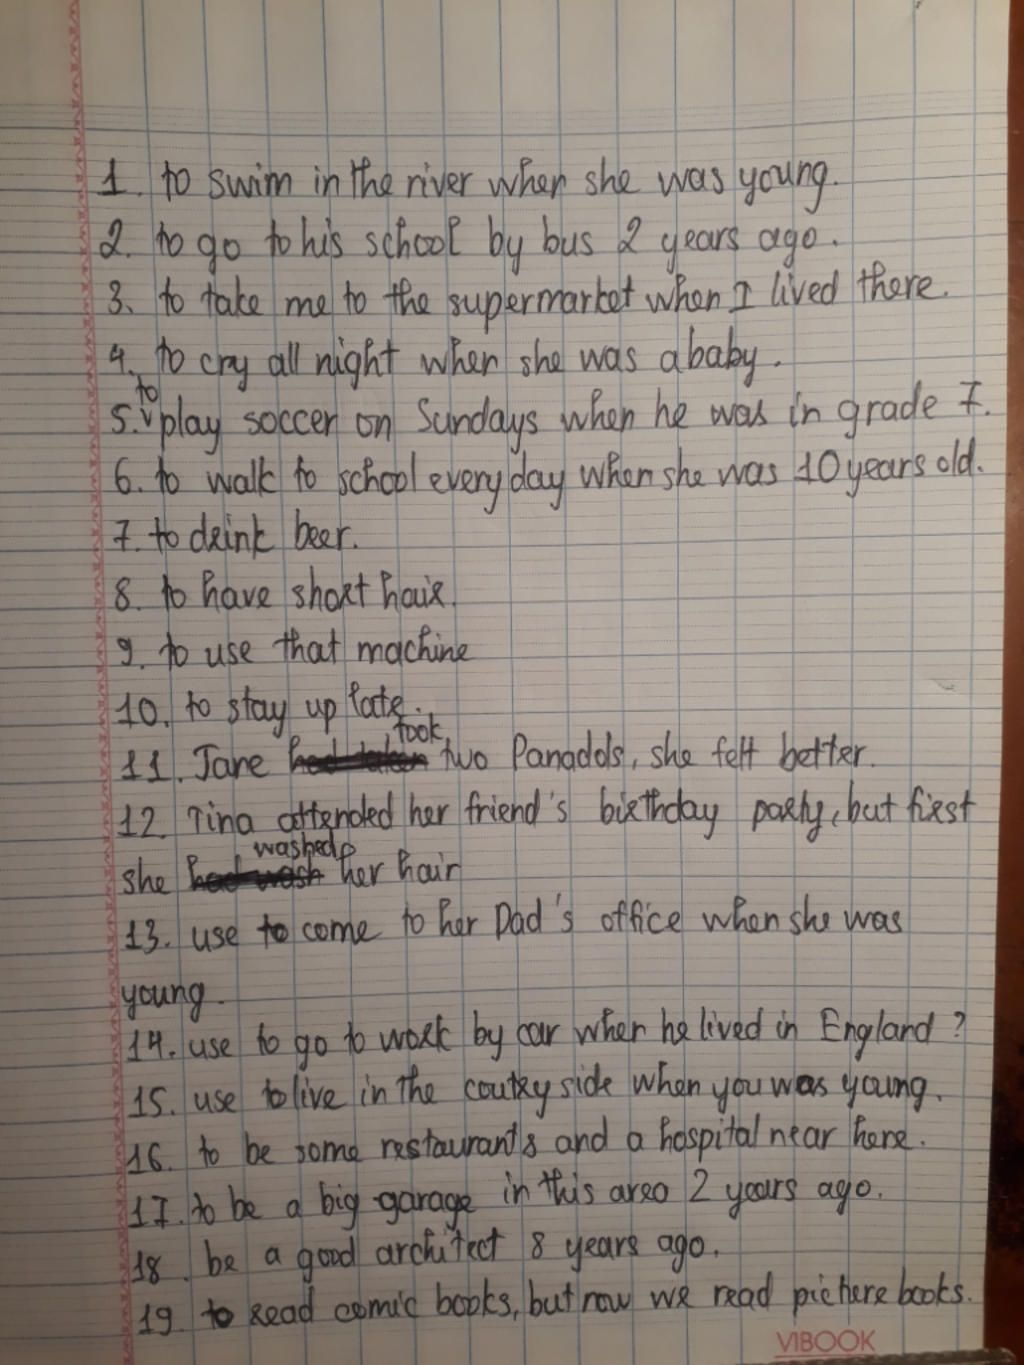 1. to swim in the river when she was young.
2. to go to his school by bus 2 years ago.
3. to take me to the supermarket when I lived there.
4. to cry all night when she was a baby.
to
5. play soccer on Sundays when he was in grade 7.
6. to walk to school every day when she was 10 years old.
7. to drink beer.
8. to have short hair.
9. to use that machine
10. to stay up late.
took
11. Jane had taken two Panadols, she felt better.
12. Tina attended her friend's birthday party, but first
washed
she had wash her hair
13. use to come to her Dad's office when she was
young.
14. use to go to work by car when he lived in England?
15. use to live in the coutry side when you was young.
16. to be some restaurants and a hospital near here.
17. to be a big garage in this area 2 years ago.
18. be a good architect 8 years ago.
19. to read comic books, but now we read pictere books.
VIBOOK